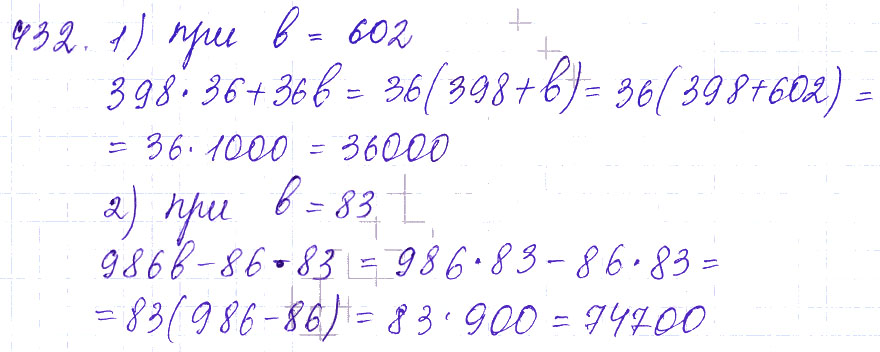 432. 1) при в = 602
398 · 36 + 36в = 36(398 + в) = 36(398 + 602) =
= 36 · 1000 = 36000
2) при в = 83
986в - 86 · 83 = 986 · 83 - 86 · 83 =
= 83(986 - 86) = 83 · 900 = 74700